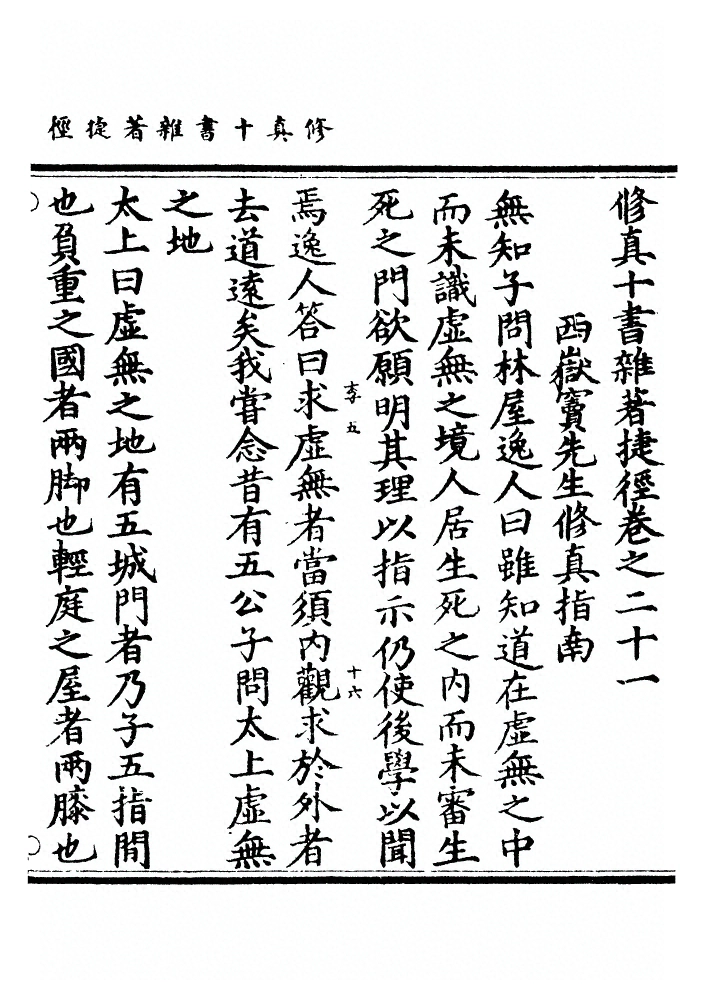 修真十書雜著捷徑
修真十書雜著捷徑卷之二十一
西嶽竇先生修真指南
無知子問林屋逸人曰雖知道在虛無之中
而未識虛無之境人居生死之內而未審生
死之門欲願明其理以指示仍使後學以聞
李五
十六
焉逸人答曰求虛無者當須內觀求於外者
去道遠矣我嘗念昔有五公子問太上虛無
之地
太上曰虛無之地有五城門者乃子五指間
也負重之國者兩脚也輕庭之屋者兩膝也